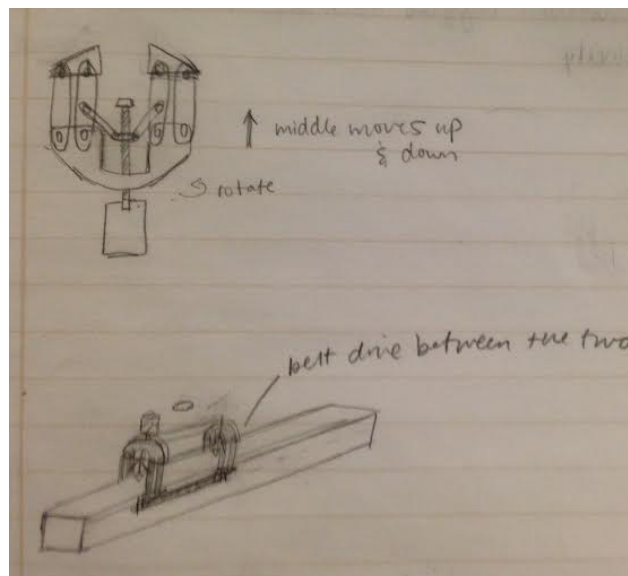 middle moves up
& down
rotate
belt drive between the two